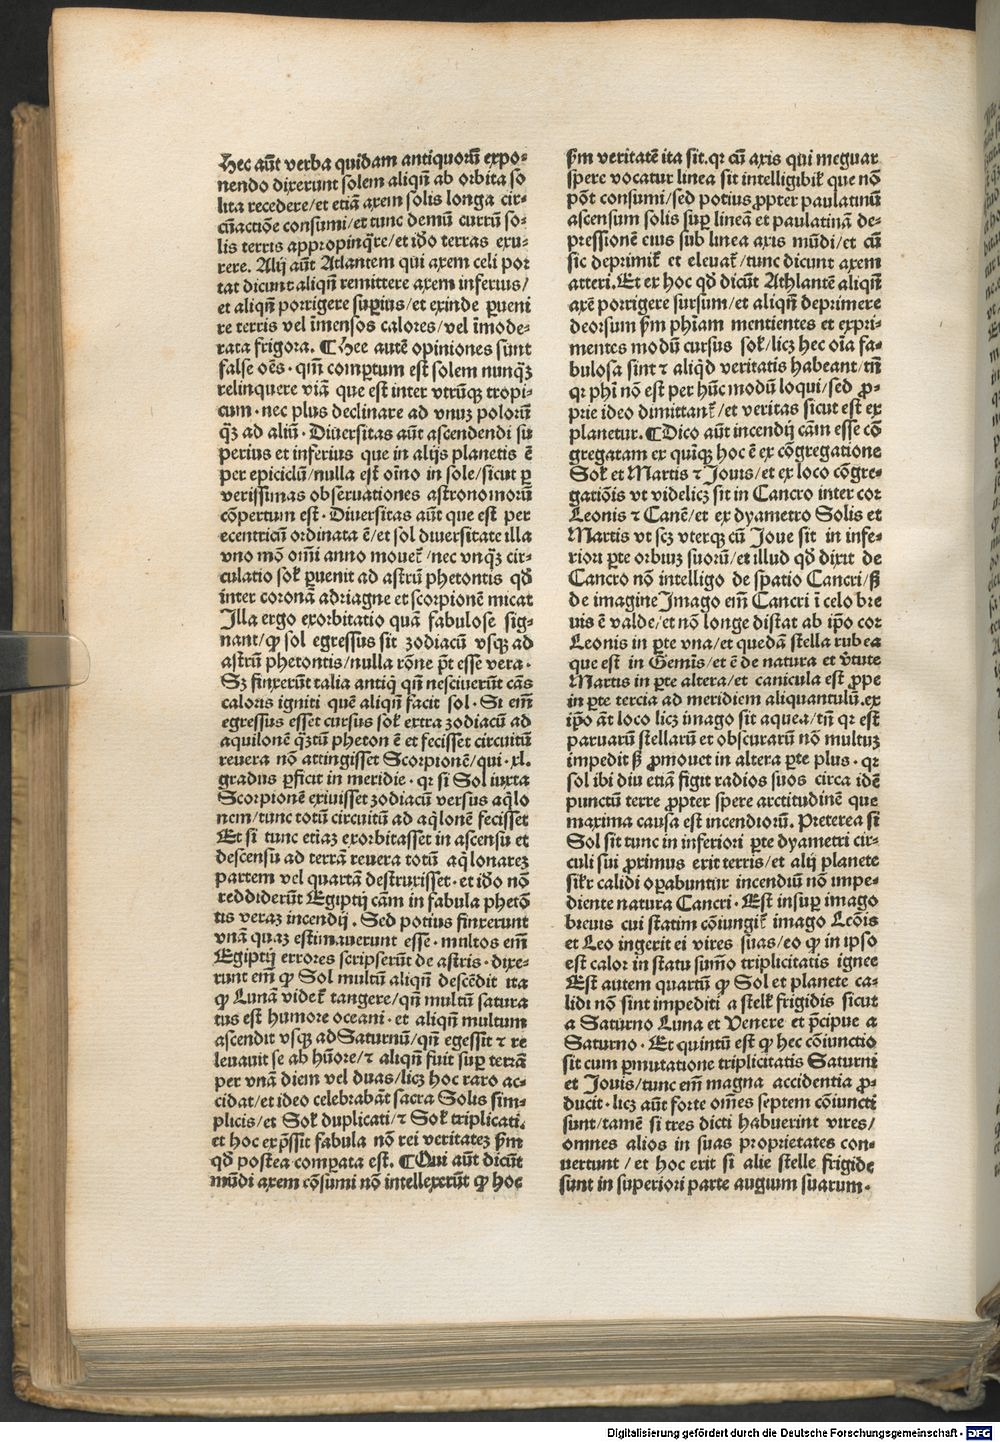 Hec aūt verba quidam antiquorū expo⸗
nendo dixerunt solem aliqn̄ ab orbita so
lita recedere/et etiā axem solis longa cir⸗
cūactiōe consumi/et tunc demū currū so⸗
lis terris appropinq̄re/et iđo terras exu⸗
rere. Alij aūt Atlantem qui axem celi por
tat dicunt aliqn̄ remittere axem inferius/
et aliqn̄ porrigere suꝑius/et exinde ꝑueni
re terris vel īmensos calores/vel īmode⸗
rata frigora. ¶ Hee autē opiniones sunt
false oēs · qm̄ comꝑtum est solem nunq̄ꝫ
relinquere viā que est inter vtrūqꝫ tropi⸗
cum · nec plus declinare ad vnuꝫ polorū
q̄ꝫ ad aliū · Diuersitas aūt ascendendi su
perius et inferius que in alijs planetis ē
per epiciclū/nulla est oīno in sole/sicut ꝑ
verissimas obseruationes astronomorū
cōpertum est · Diuersitas aūt que est per
ecentricū ordinata ē/et sol diuersitate illa
vno mō oīni anno mouet᷑/nec vnq̄ꝫ cir⸗
culatio soł ꝑuenit ad astrū phetontis qđ
inter coronā adriagne et scorpionē micat
Illa ergo exorbitatio quā fabulose sig⸗
nant/ꝙ sol egressus sit zodiacū vsqꝫ ad
astrū phetontis/nulla rōne pt̄ esse vera ·
Sꝫ finxerūt talia antiq̇ qn̄ nesciuerūt cās
caloris igniti quē aliqn̄ facit sol · Si em̄
egressus esset cursus soł extra zodiacū ad
aquilonē q̄ꝫtū pheton ē et fecisset circuitū
reuera nō attingisset Scorpionē/qui · xl.
gradus ꝑficit in meridie · qꝛ si Sol iuxta
Scorpionē exiuisset zodiacū versus aq̇lo
nem/tunc totū circuitū ad aq̇lonē fecisset
Et si tunc etiaꝫ exorbitasset in ascensu et
descensu ad terrā reuera totū aq̇lonareꝫ
partem vel quartā destruxisset · et iđo nō
reddiderūt Egiptij cām in fabula phetō
tis veraꝫ incendij . Sed potius finxerunt
vnā quaꝫ estimauerunt esse · multos em̄
Egiptij errores scripserūt de astris · dixe⸗
runt em̄ ꝙ Sol multū aliqn̄ descēdit ita
ꝙ Lunā videt᷑ tangere/qn̄ multū satura
tus est humore oceani · et aliqn̄ multum
ascendit vsqꝫ ad Saturnū/qn̄ egessit ⁊ re
leuauit se ab hūore/⁊ aliqn̄ fuit suꝑ terrā
per vnā diem vel duas/licꝫ hoc raro ac⸗
cidat/et ideo celebrabāt sacra Solis sim⸗
plicis/et Soł duplicati/⁊ Soł triplicati.
et hoc exp̄ssit fabula nō rei veritateꝫ ẜm
qđ postea comꝑata est. ¶ Qui aūt dicūt
mūdi axem cōsumi nō intellexerūt ꝙ hoc
ẜm veritatē ita sit. qꝛ cū axis qui meguar
spere vocatur linea sit intelligibił que nō
pōt consumi/sed potius ꝓpter paulatinū
ascensum solis suꝑ lineā et paulatinā de⸗
pressionē eius sub linea axis mūdi/et cū
sic deprimit᷑ et eleuat᷑/tunc dicunt axem
atteri. Et ex hoc qđ dicūt Athlantē aliqn̄
axē porrigere sursum/et aliqn̄ deprimere
deorsum ẜm phīam mentientes et expri⸗
mentes modū cursus soł/licꝫ hec oīa fa⸗
bulosa sint ⁊ aliq̇d veritatis habeant/tn̄
qꝛ phī nō est per hūc modū loqui/sed ꝓ⸗
prie ideo dimittant᷑/et veritas sicut est ex
planetur. ¶ Dico aūt incendij cām esse cō
gregatam ex quīqꝫ hoc ē ex cōgregatione
Soł et Martis ⁊ Jouis/et ex loco cōgre⸗
gatiōis vt videlicꝫ sit in Cancro inter cor
Leonis ⁊ Canē/et ex dyametro Solis et
Martis vt scꝫ vterqꝫ cū Joue sit in infe⸗
riori ꝑte orbiuꝫ suorū/et illud qđ dixit de
Cancro nō intelligo de spatio Cancri/ß
de imagine Jmago em̄ Cancri ī celo bre
uis ē valde/et nō longe distat ab ip̄o cor
Leonis in ꝑte vna/et quedā stella rubea
que est in Gemīs/et ē de natura et v̄tute
Martis in ꝑte altera/et canicula est ꝓpe
in ꝑte tercia ad meridiem aliquantulū. ex
ip̄o āt loco licꝫ imago sit aquea/tn̄ qꝛ est
paruarū stellarū et obscurarū nō multuꝫ
impedit ß ꝓmouet in altera ꝑte plus · qꝛ
sol ibi diu etiā figit radios suos circa idē
punctū terre ꝓpter spere arctitudinē que
maxima causa est incendiorū. Preterea si
Sol sit tunc in inferiori ꝑte dyametri cir⸗
culi sui ꝓximus erit terris/et alij planete
sił̕r calidi oꝑabuntur incendiū nō impe⸗
diente natura Cancri · Est insuꝑ imago
breuis cui statim cōiungit᷑ imago Leōis
et Leo ingerit ei vires suas/eo ꝙ in ipso
est calor in statu sum̄o triplicitatis ignee
Est autem quartū ꝙ Sol et planete ca⸗
lidi nō sint impediti a stelł frigidis sicut
a Saturno Luna et Venere et p̄cipue a
Saturno · Et quintū est ꝙ hec cōiunctio
sit cum ꝑmutatione triplicitatis Saturni
et Jouis/tunc em̄ magna accidentia ꝓ⸗
ducit · licꝫ aūt forte om̄es septem cōiuncti
sunt/tamē si tres dicti habuerint vires/
omnes alios in suas proprietates con⸗
uertunt / et hoc erit si alie stelle frigide
sunt in superiori parte augium suarum ·
Digitalisierung gefördert durch die Deutsche Forschungsgemeinschaft - DFG